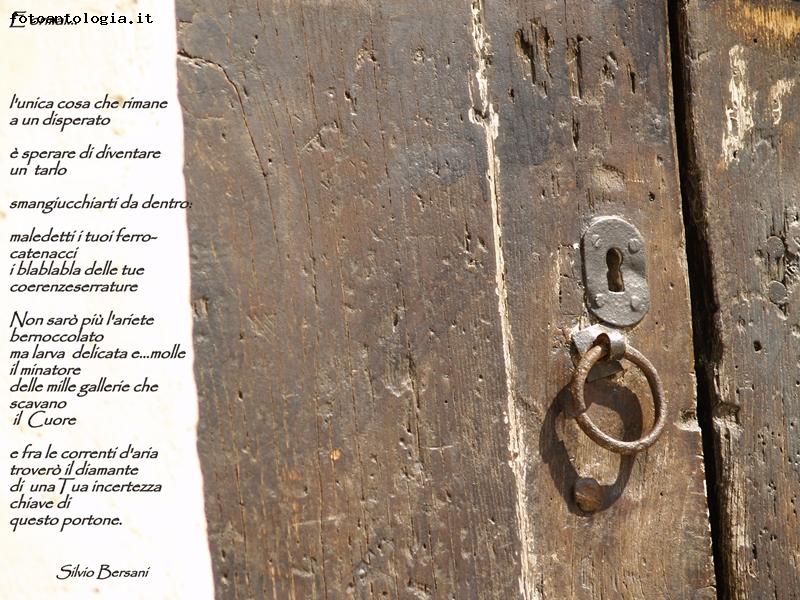 fotoantologia.it
E ormai...
l'unica cosa che rimane
a un disperato
è sperare di diventare
un tarlo
smangiucchiarti da dentro:
maledetti i tuoi ferro-
catenacci
i blablabla delle tue
coerenzeserrature
Non sarò più l'ariete
bernoccolato
ma larva delicata e...molle
il minatore
delle mille gallerie che
scavano
il Cuore
e fra le correnti d'aria
troverò il diamante
di una Tua incertezza
chiave di
questo portone.
Silvio Bersani